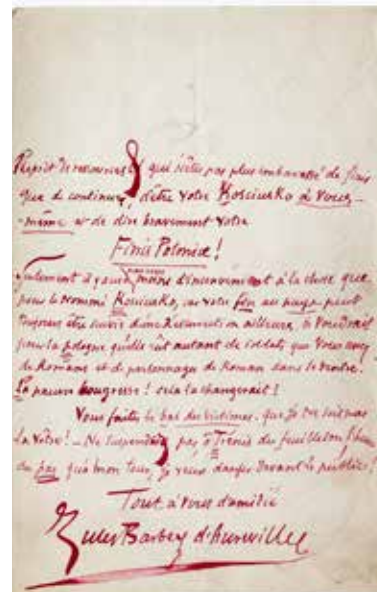 l'esprit de ressources et qui n'êtes pas plus embarrassé de finir
que de continuer, d'être votre Kosciusko à vous-
-même et de dire bravement votre
Finis Poloniæ !
Seulement il y aura moins d'inconvénient à la chose que
pour le nommé Kosciusko, car votre fin au pays peut
toujours être suivie d'une Résurrection ailleurs. Je voudrais
pour la pologne qu'elle eût autant de soldats que vous avez
de Romans et de personnages de Roman dans le ventre.
La pauvre bougresse ! cela la changerait !
Vous faites le bal des victimes, que je ne sois pas
la vôtre ! – Ne suspendez pas, ô Trénis du feuilleton
au pas qu'à mon tour, je veux danser devant le public !
Tout à vous d'amitié
Jules Barbey d'Aurevilly